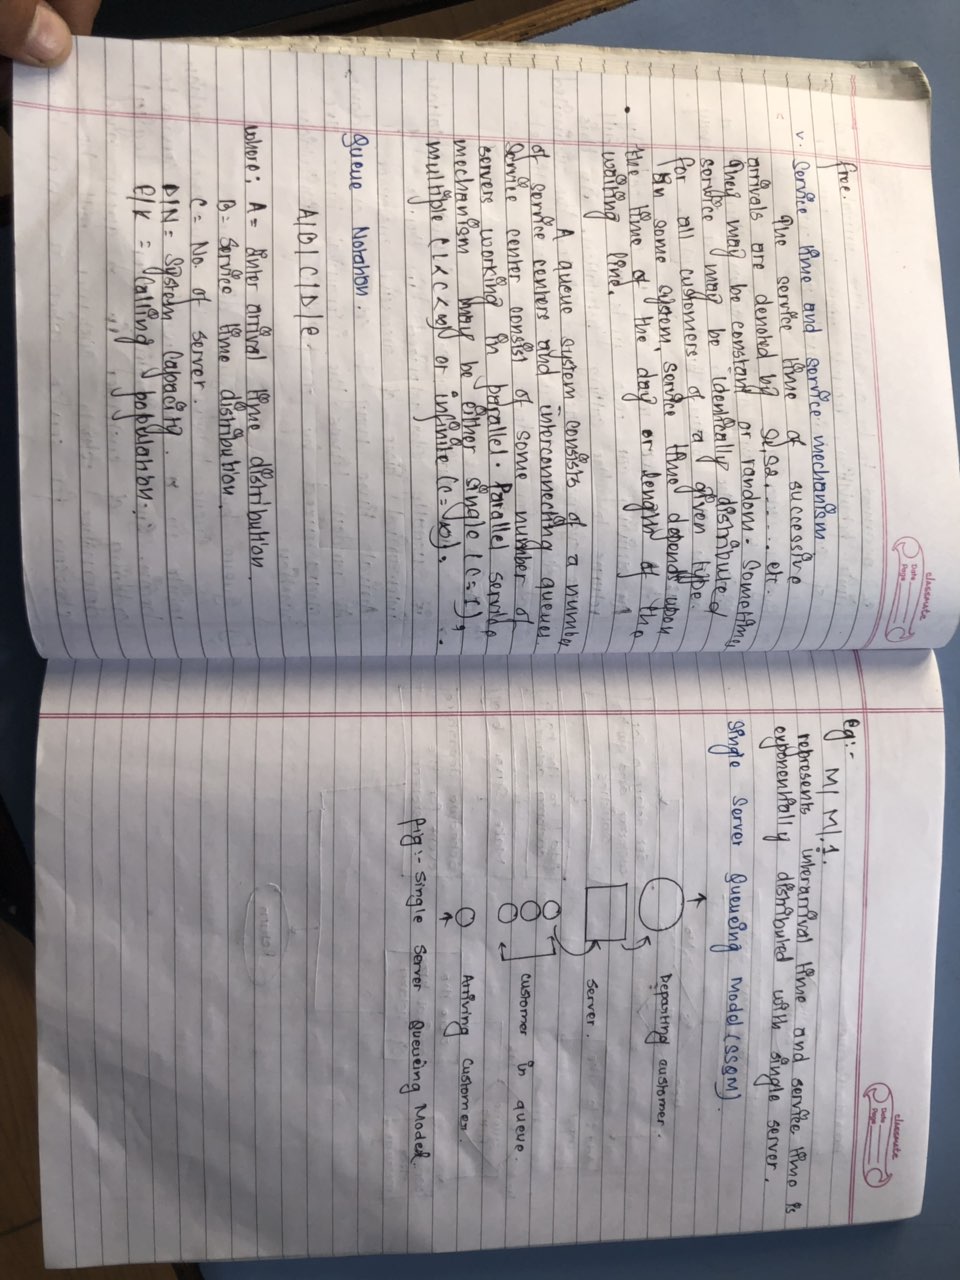 classmate
Date
Page
free.
v. Service time and service mechanism.
The service time of successive
arrivals are denoted by S1, S2....... etc.
They may be constant or random. Sometime
service may be identically distributed
for all customers of a given type.
In some system, service time depends upon
the time of the day or length of the
waiting line.
A queue system consists of a number
of service centers and interconnecting queues.
Service center consist of some number of
servers working in parallel. Parallel service
mechanism may be either single (c=1),
multiple (1<c<∞) or infinite (c=∞).
Queue Notation.
A|B|C|D|e.
where; A = Inter arrival time distribution.
B = Service time distribution.
C = No. of server.
D/N = System Capacity.
E/K = Calling population.
classmate
Date
Page
eg:- M/M/1.
represents interarrival time and service time is
exponentially distributed with single server.
Single Server Queueing Model (SSQM).
Departing customer.
Server.
customer in queue.
Arriving customer.
fig:- Single Server Queueing Model.